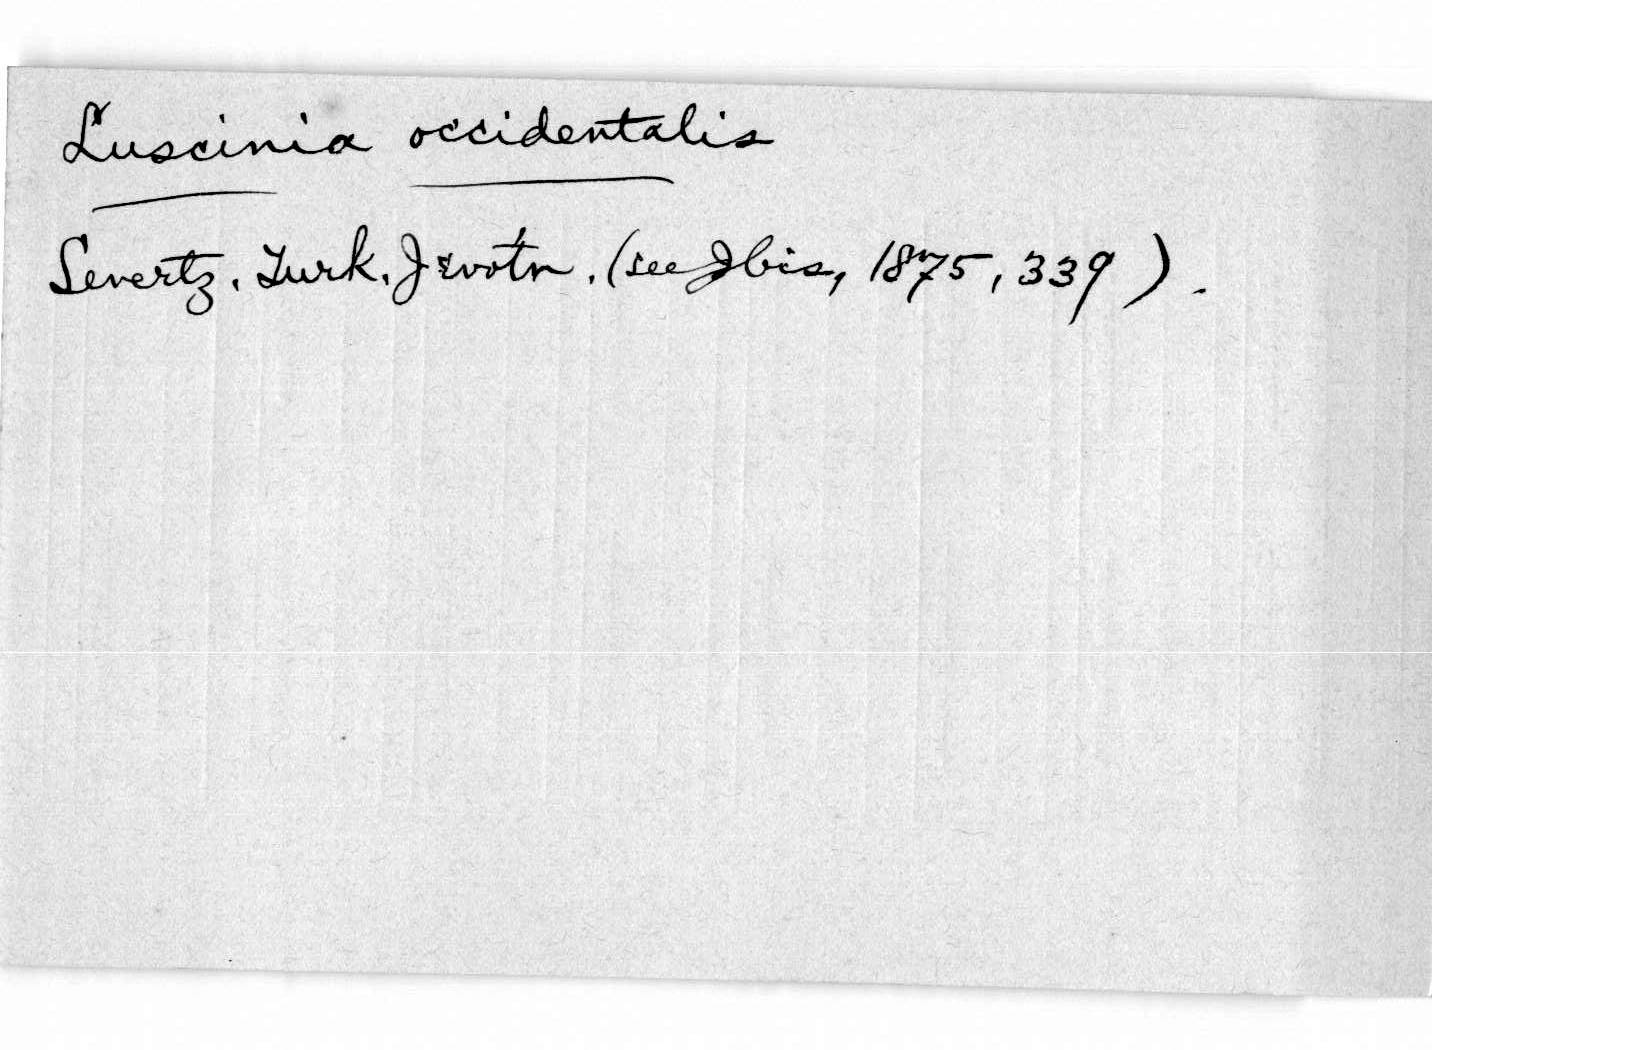 Luscinia occidentalis
Severtz. Turk. Jevotn. (see Ibis, 1875, 339).